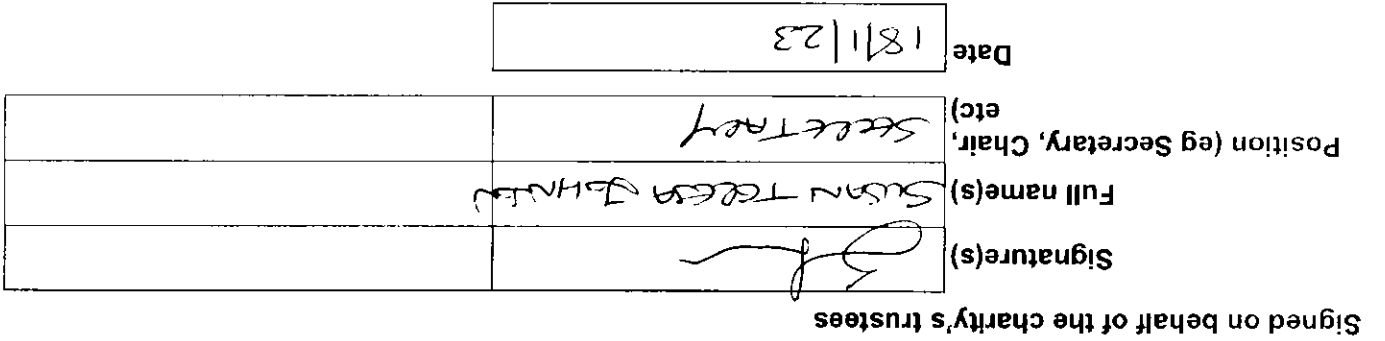 Signed on behalf of the charity's trustees
Signature(s)
Full name(s) SUSAN TERESA JOHNSTON
Position (eg Secretary, Chair, etc) SECRETARY
Date 18/1/23